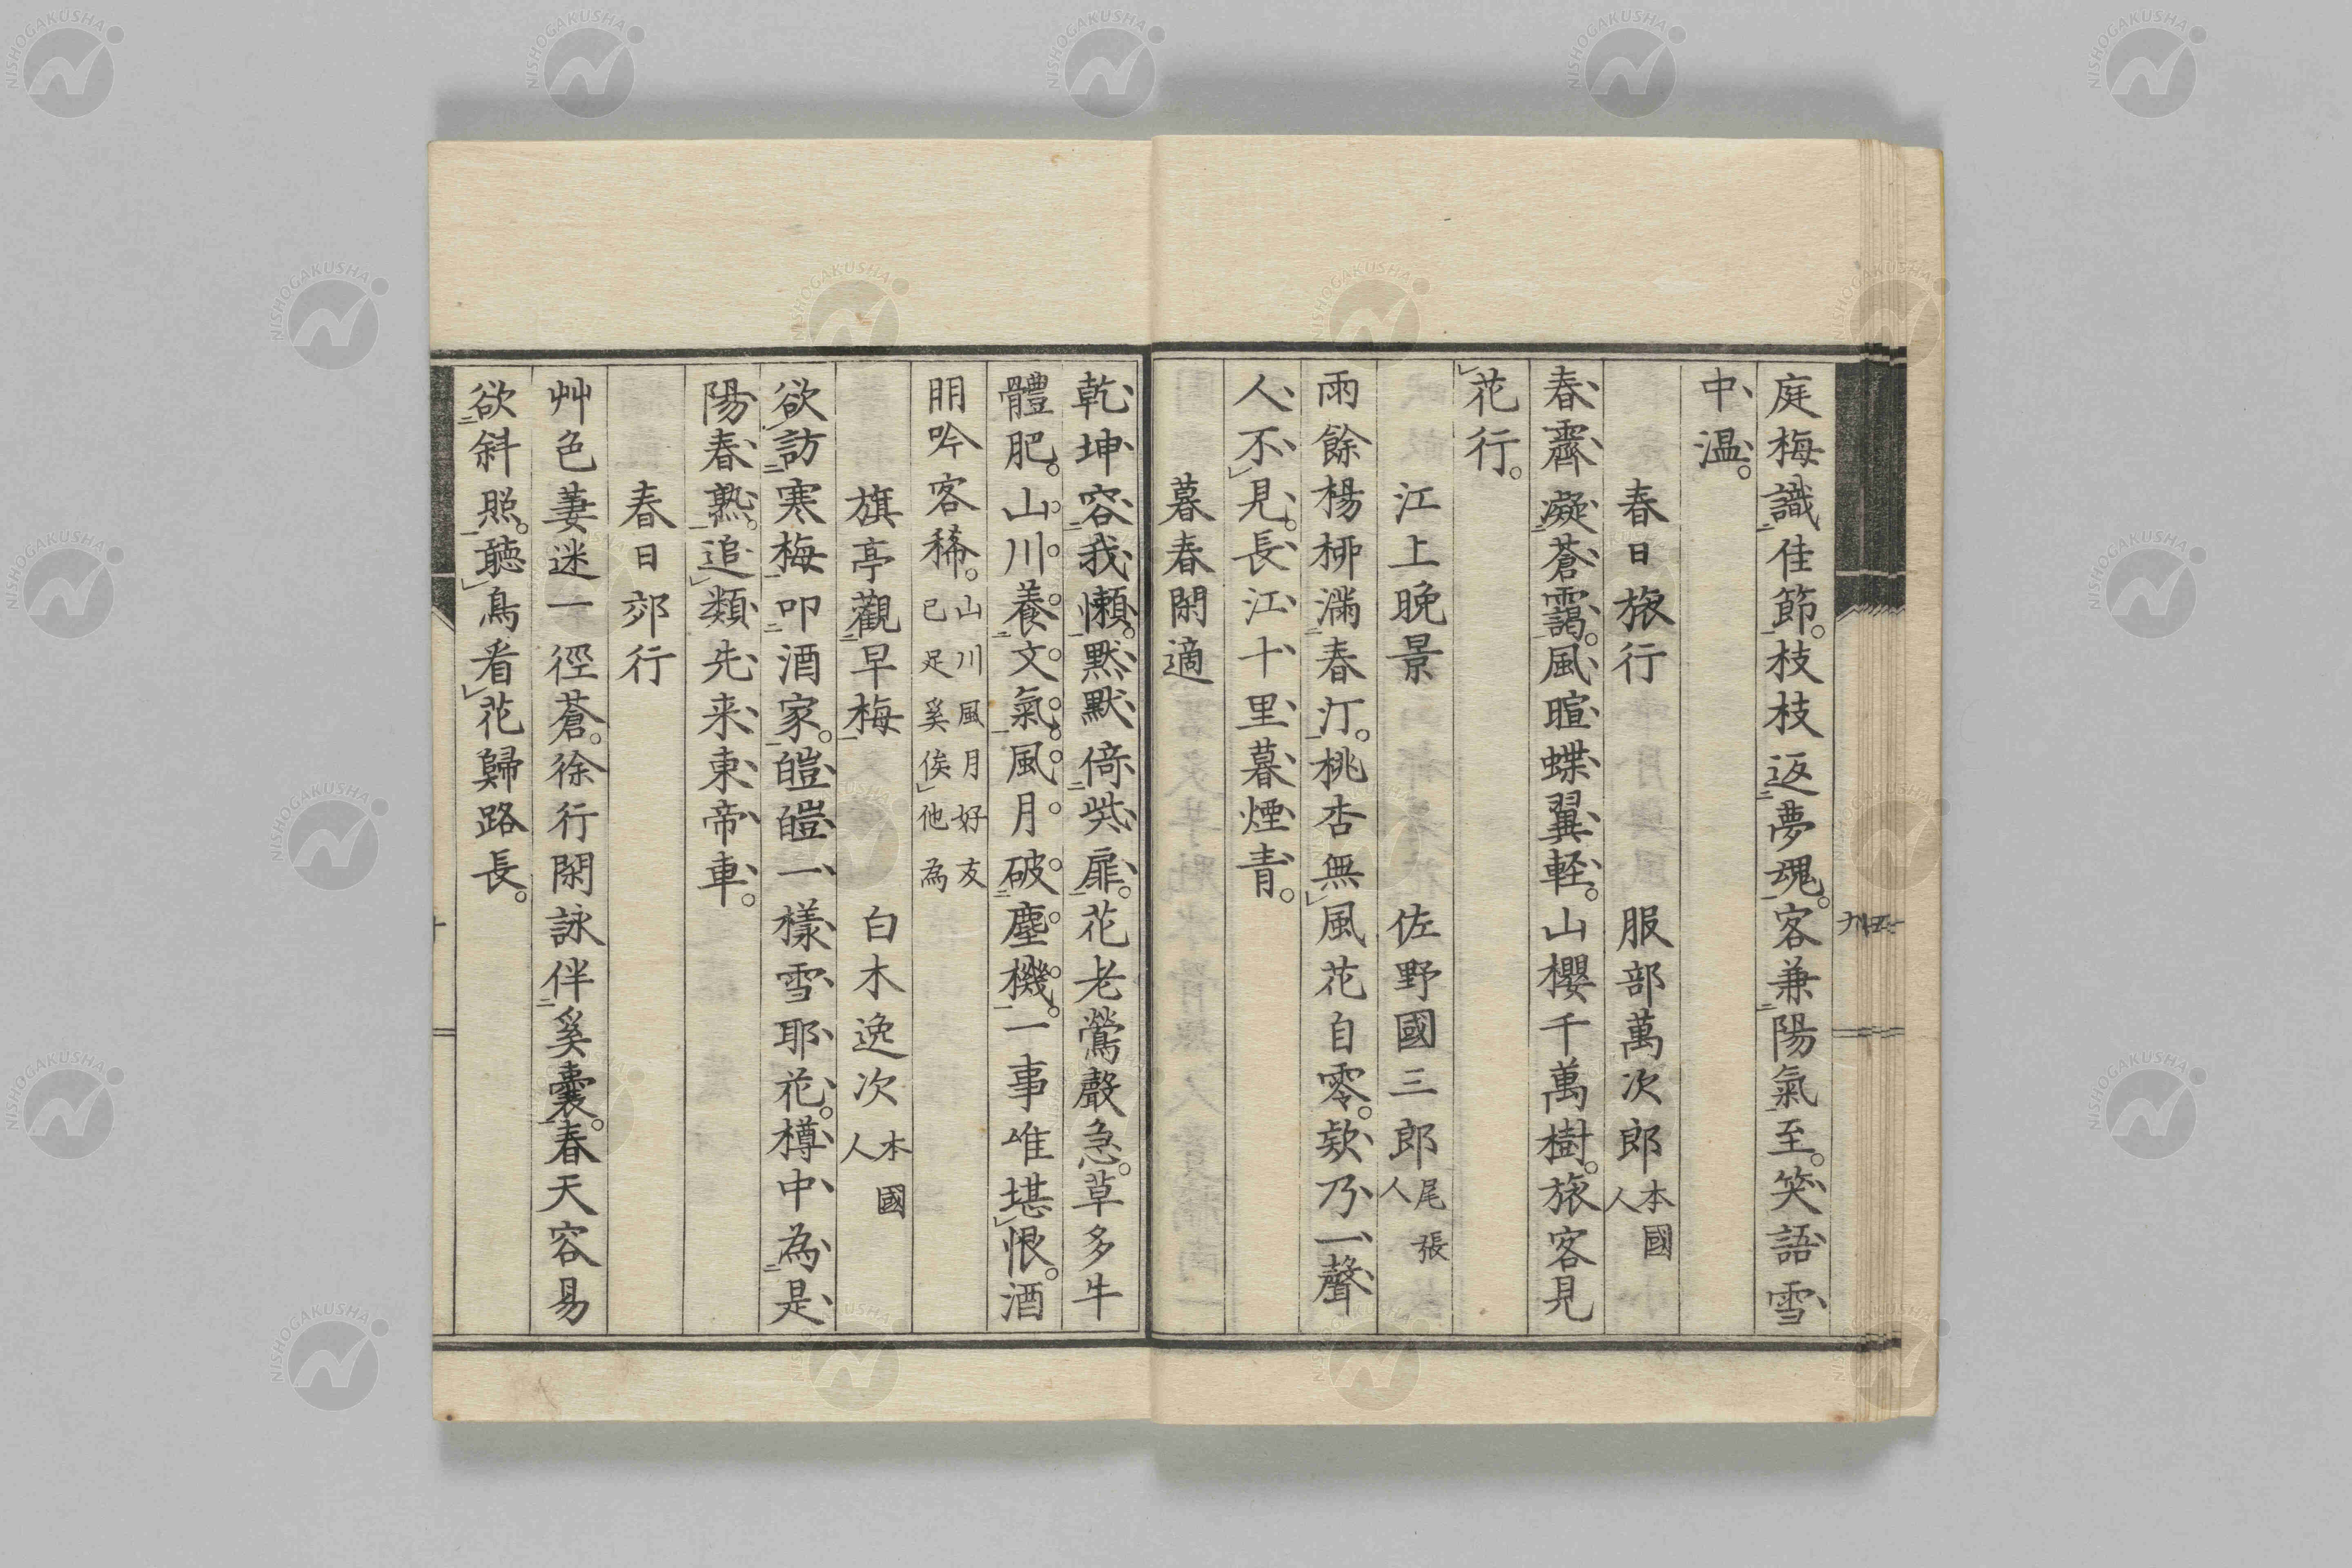 庭梅識佳節。枝枝返夢魂。客兼陽氣至。笑語雪
中温。
春日旅行 服部萬次郎 本國人
春霽凝蒼靄。風暄蝶翼軽。山櫻千萬樹。旅客見
花行。
江上晩景 佐野國三郎 尾張人
雨餘楊柳滿春汀。桃杏無風花自零。欸乃一聲
人不見。長江十里暮煙青。
暮春閑適
乾坤容我懶。默默倚柴扉。花老鶯聲急。草多牛
體肥。山川養文氣。風月破塵機。一事唯堪恨。酒
朋吟客稀。山川風月好友已足奚俟他為
旗亭觀早梅 白木逸次 本國人
欲訪寒梅叩酒家。皚皚一樣雪耶花。樽中為是
陽春熟。追類先来東帝車。
春日郊行
艸色萋迷一徑蒼。徐行閑詠伴奚囊。春天容易
欲斜照。聽鳥看花歸路長。
NISHOGAKUSHA